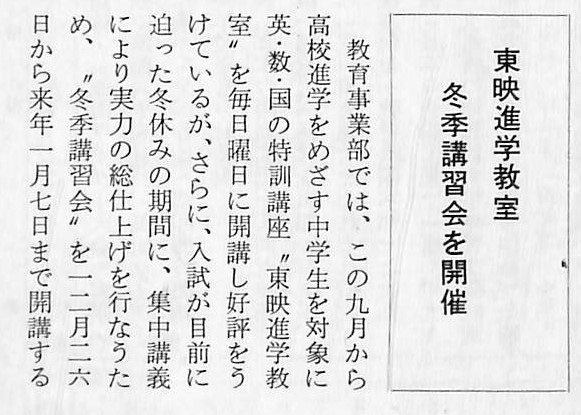 東映進学教室
冬季講習会を開催
教育事業部では、この九月から
高校進学をめざす中学生を対象に
英・数・国の特訓講座〝東映進学教
室〟を毎日曜日に開講し好評をう
けているが、さらに、入試が目前に
迫った冬休みの期間に、集中講義
により実力の総仕上げを行なうた
め、〝冬季講習会〟を一二月二六
日から来年一月七日まで開講する